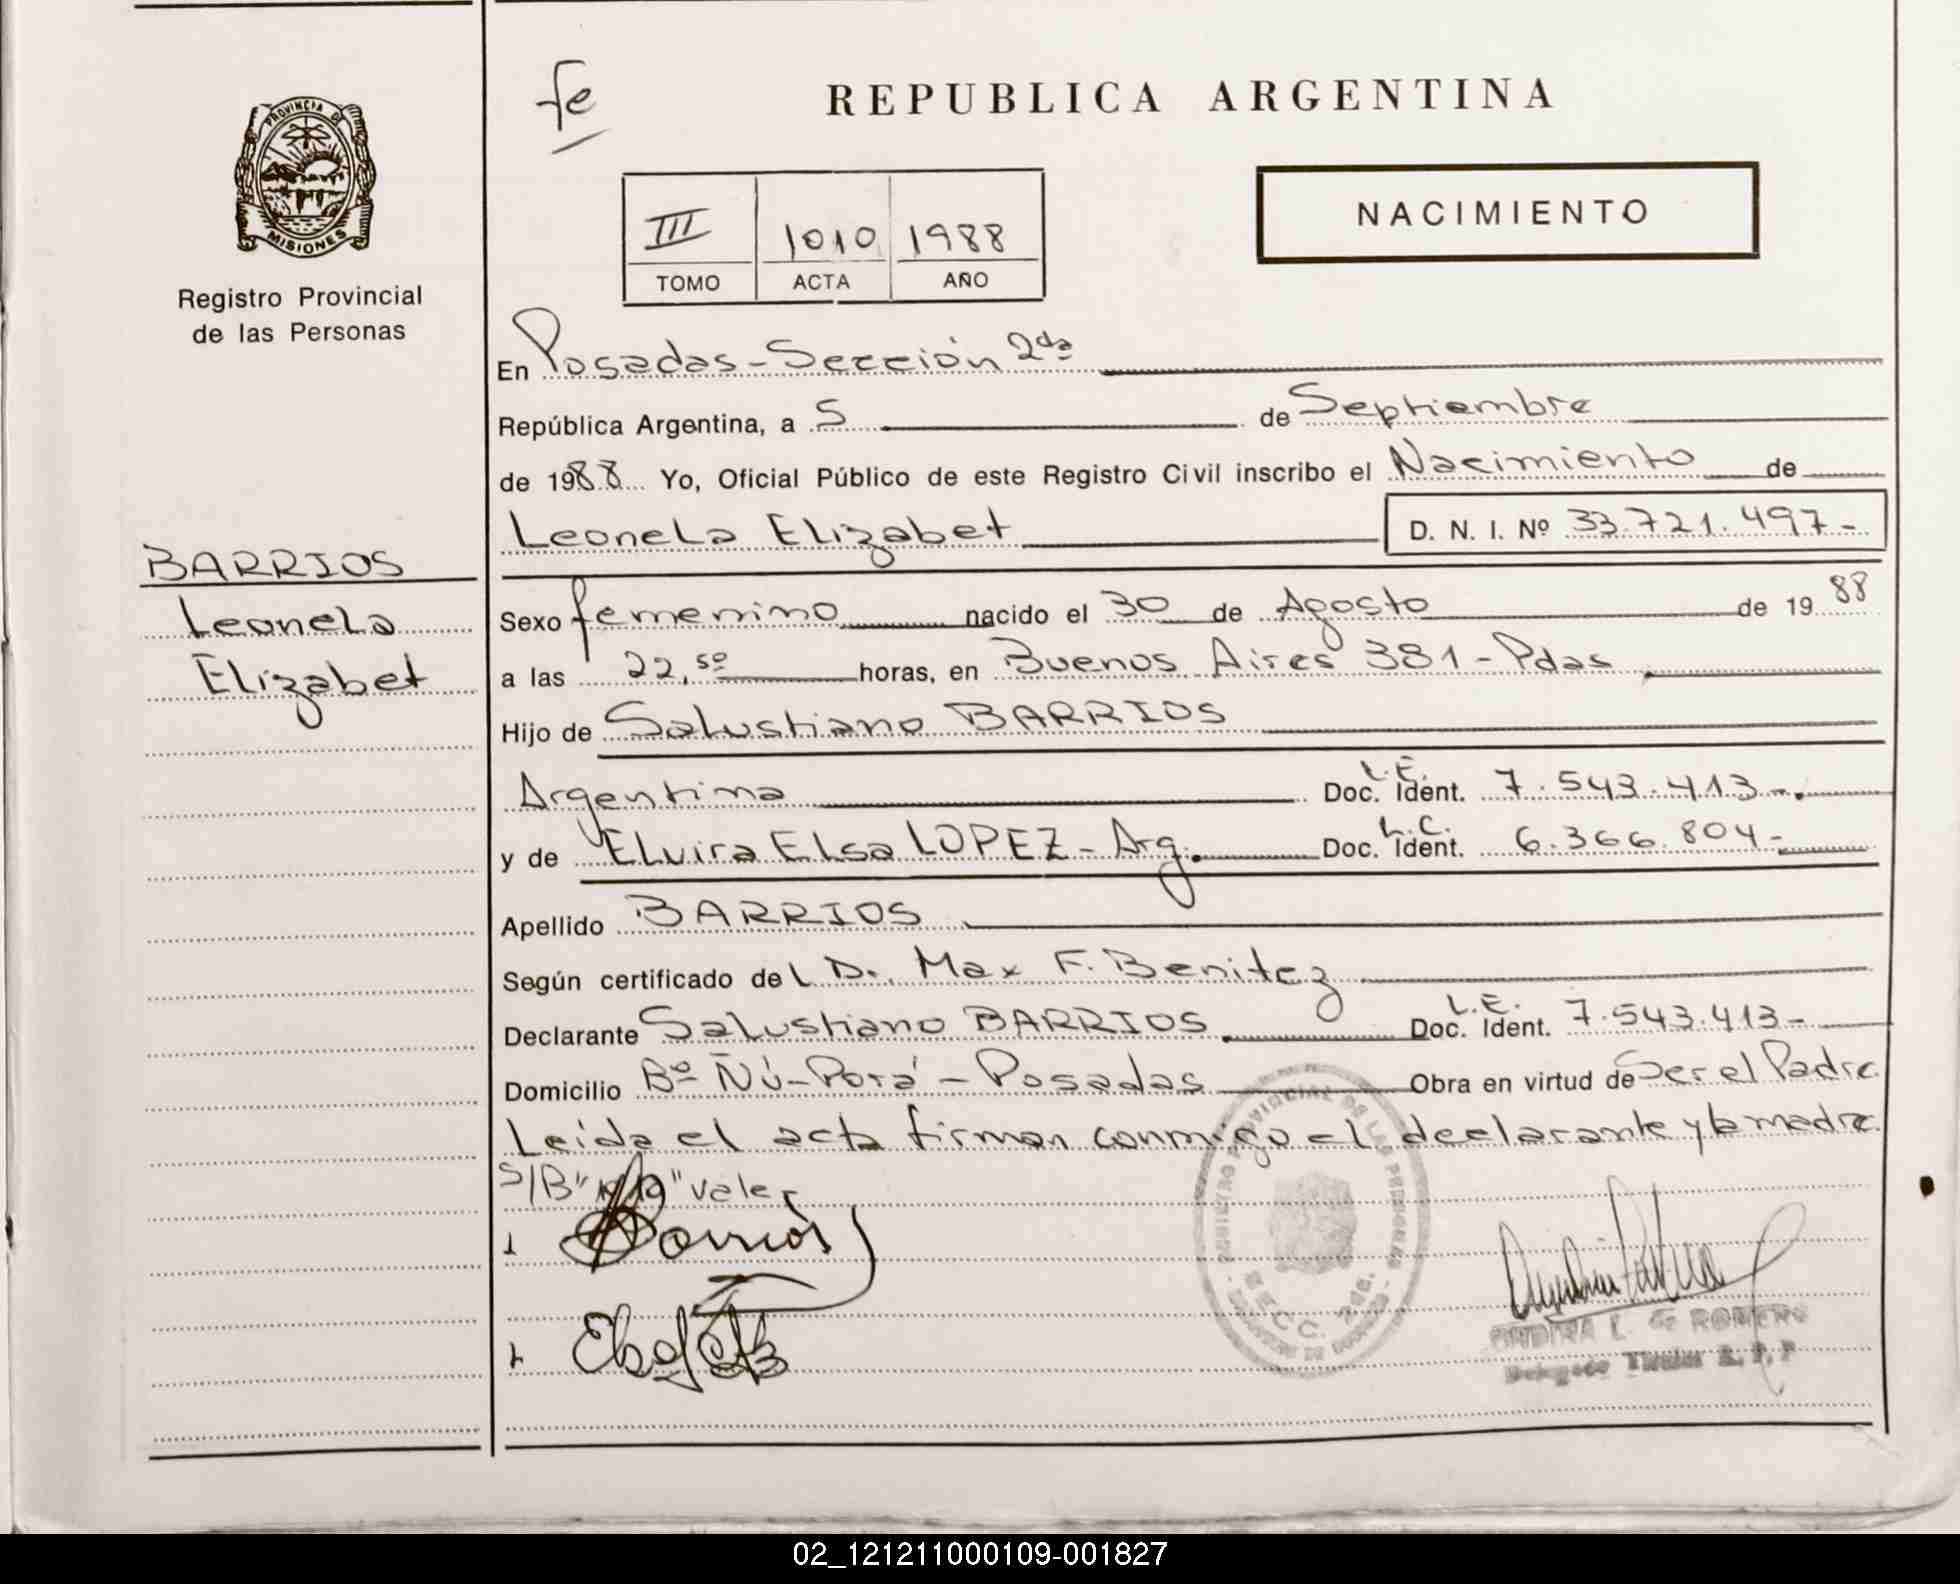 PROVINCIA DE
MISIONES
Registro Provincial
de las Personas
BARRIOS
Leonela
Elizabet
fe
REPUBLICA ARGENTINA
III 1010 1988
TOMO ACTA AÑO
NACIMIENTO
En Posadas-Sección 2da
República Argentina, a 5 de Septiembre
de 1988 Yo, Oficial Público de este Registro Civil inscribo el Nacimiento de
Leonela Elizabet D. N. I. Nº 33.721.497-
Sexo femenino nacido el 30 de Agosto de 1988
a las 22,50 horas, en Buenos Aires 381-Pdas
Hijo de Salustiano BARRIOS
Argentina L.E. Doc. Ident. 7.543.413-.
y de Elvira Elsa LOPEZ-Arg. L.C. Doc. Ident. 6.366.804-
Apellido BARRIOS
Según certificado del Dr. Max F. Benitez
Declarante Salustiano BARRIOS L.E. Doc. Ident. 7.543.413-
Domicilio Bº Ñú-Porá-Posadas Obra en virtud de Ser el Padre
Leída el acta firman conmigo el declarante y la madre
S/B" " vale
Barrios
SECC. 2da.
L. de ROMERO
Delegado Titular R. P. P
02_121211000109-001827